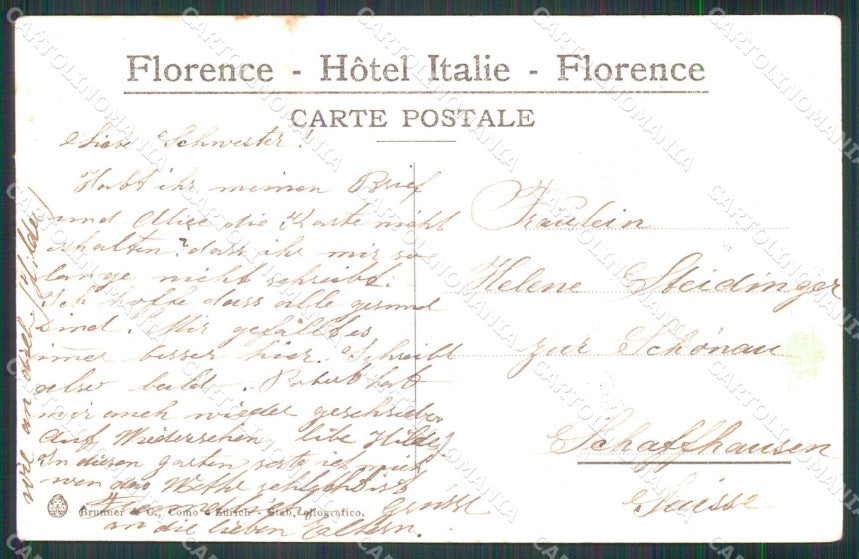 Florence - Hôtel Italie - Florence
CARTE POSTALE
Liebe Schwester!
Habt ihr meinen Brief
und Alice die Karte nicht
erhalten? dass ihr mir so
lange nicht schreibt.
Ich hoffe dass alle gesund
sind. Mir gefällt es
imer besser hier. Schreibt
also balde. Robert hat
mir auch wieder geschrieben
Auf Wiedersehen, libe
In diesen garten setze ich mich
wen das Wetter schön ist
Grüsse
an die lieben Eltern.
wie an dich
Fräulein
Helene Steidinger
zur Schönau
Schaffhausen
Suisse
Brunner & C., Como - Zürich - Stab. eliografico.
CARTOLINOMANIA